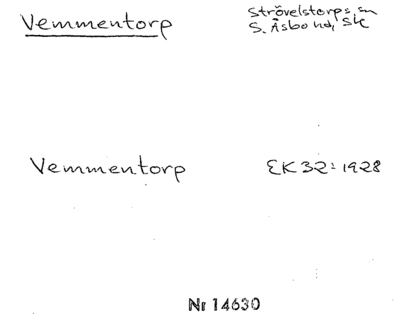 Vemmentorp
Strövelstorps sn
S. Åsbo hd, Sk
Vemmentorp
EK 32: 1928
Nr 14630